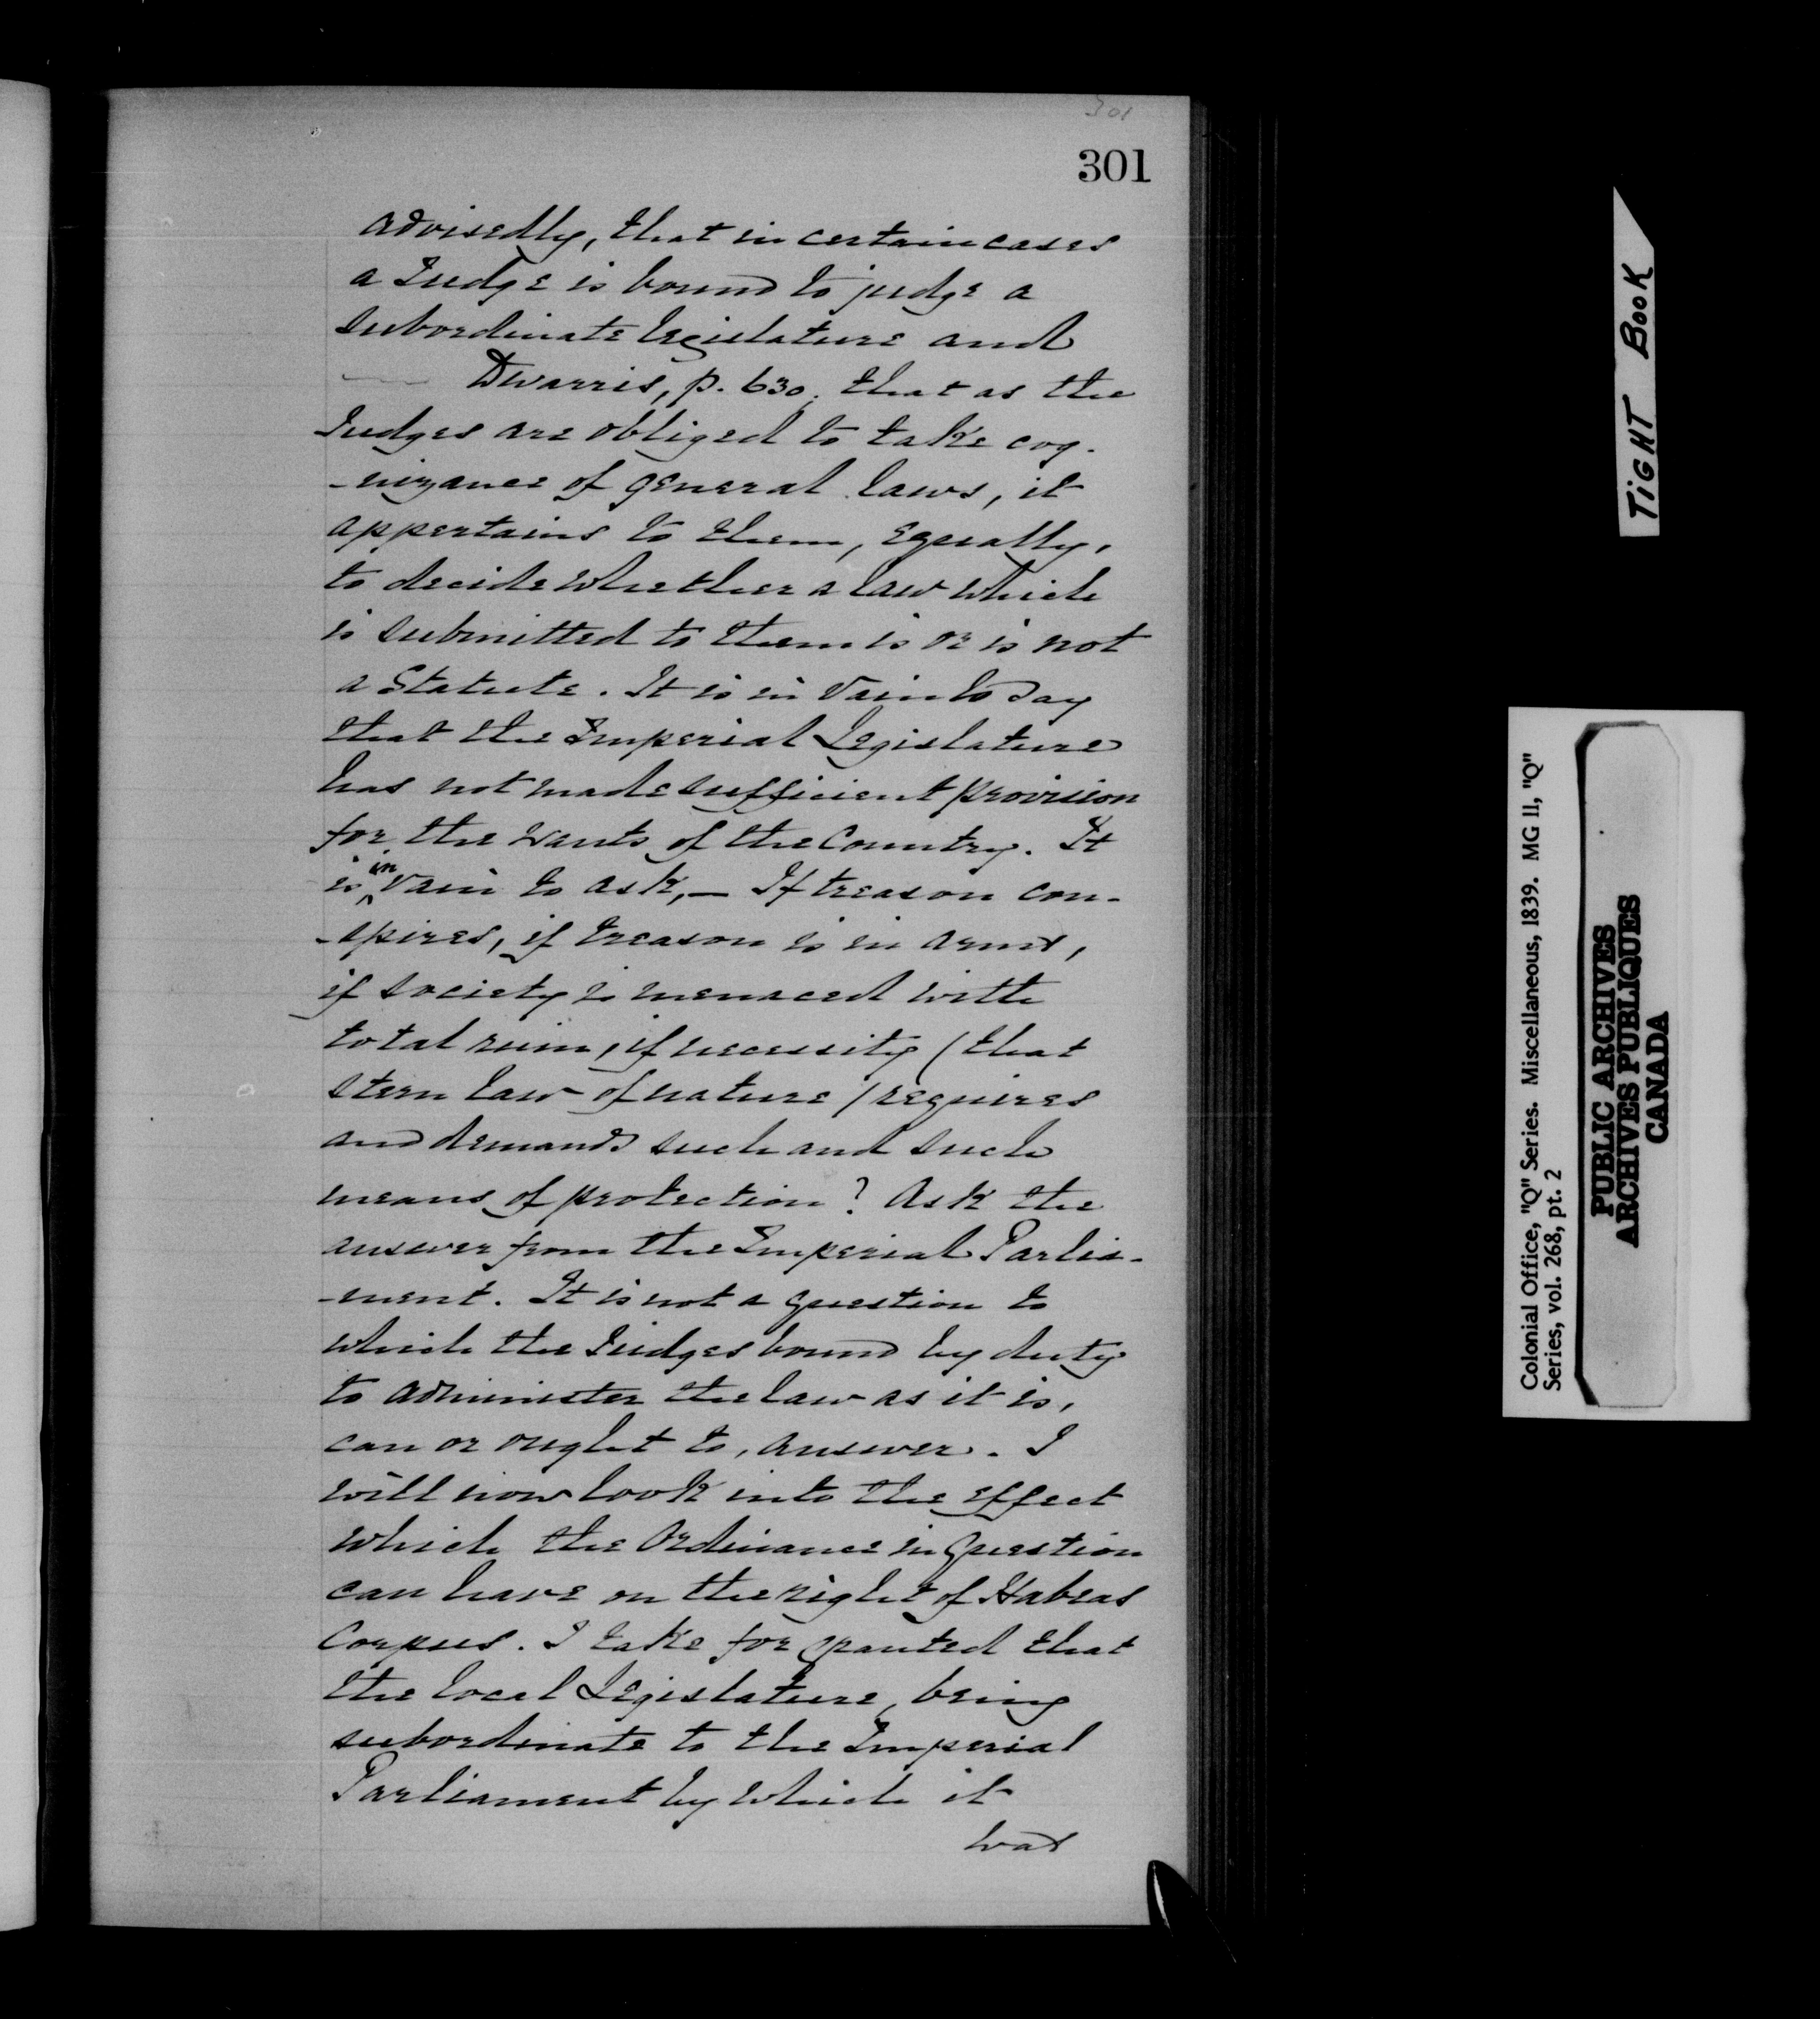 301
301
advisedly, that in certain cases
a Judge is bound to judge a
subordinate legislature and
Dwarris, p. 630, that as the
Judges are obliged to take cog-
-nizance of general laws, it
appertains to them, equally,
to decide whether a law which
is submitted to them is or is not
a Statute. It is in vain to say
that the Imperial Legislature
has not made sufficient provision
for the wants of the Country. It
is in vain to ask, — If treason con-
-spires, if treason is in arms,
if society is menaced with
total ruin, if necessity (that
stern law of nature) requires
and demands such and such
means of protection? Ask the
answer from the Imperial Parlia-
-ment. It is not a question to
which the Judges bound by duty
to administer the law as it is,
can or ought to, answer. I
will now look into the effect
which the Ordinance in question
can have on the right of Habeas
Corpus. I take for granted that
the local Legislature, being
subordinate to the Imperial
Parliament by which it
was
TIGHT BOOK
Colonial Office, "Q" Series. Miscellaneous, 1839. MG 11, "Q"
Series, vol. 268, pt. 2
PUBLIC ARCHIVES
ARCHIVES PUBLIQUES
CANADA